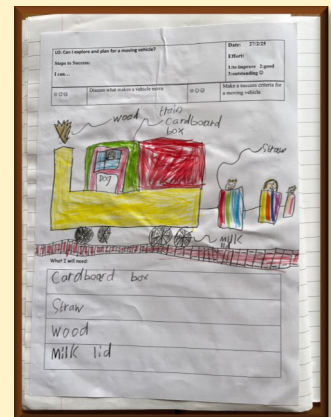 LO: Can I explore and plan for a moving vehicle?
Steps to Success:
I can...
Date: 27/2/25
Effort:
1:to improve 2:good
3:outstanding ☺
Discuss what makes a vehicle move
Make a success criteria for
a moving vehicle
wood
train
cardboard
box
straw
Dog
Milk
What I will need:
Cardboard box
Straw
Wood
Milk lid